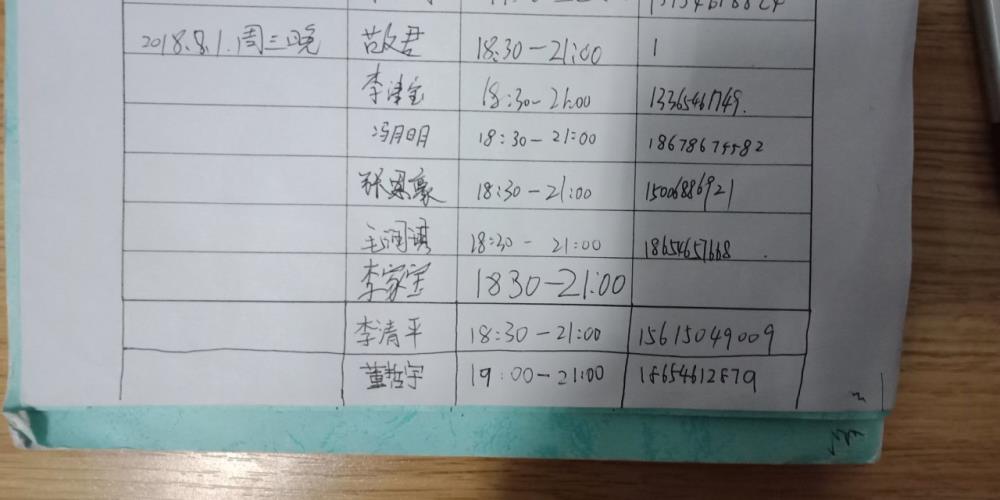 2018.8.1.周三晚 苗君 18:30-21:00 1
李津宝 18:30-21:00 13365461749.
冯月明 18:30-21:00 18678674582
张恩豪 18:30-21:00 15006886921
18:30 - 21:00 18654657668
李家宝 1830-21:00
李清平 18:30-21:00 15615049009
董哲宇 19:00-21:00 18654612879